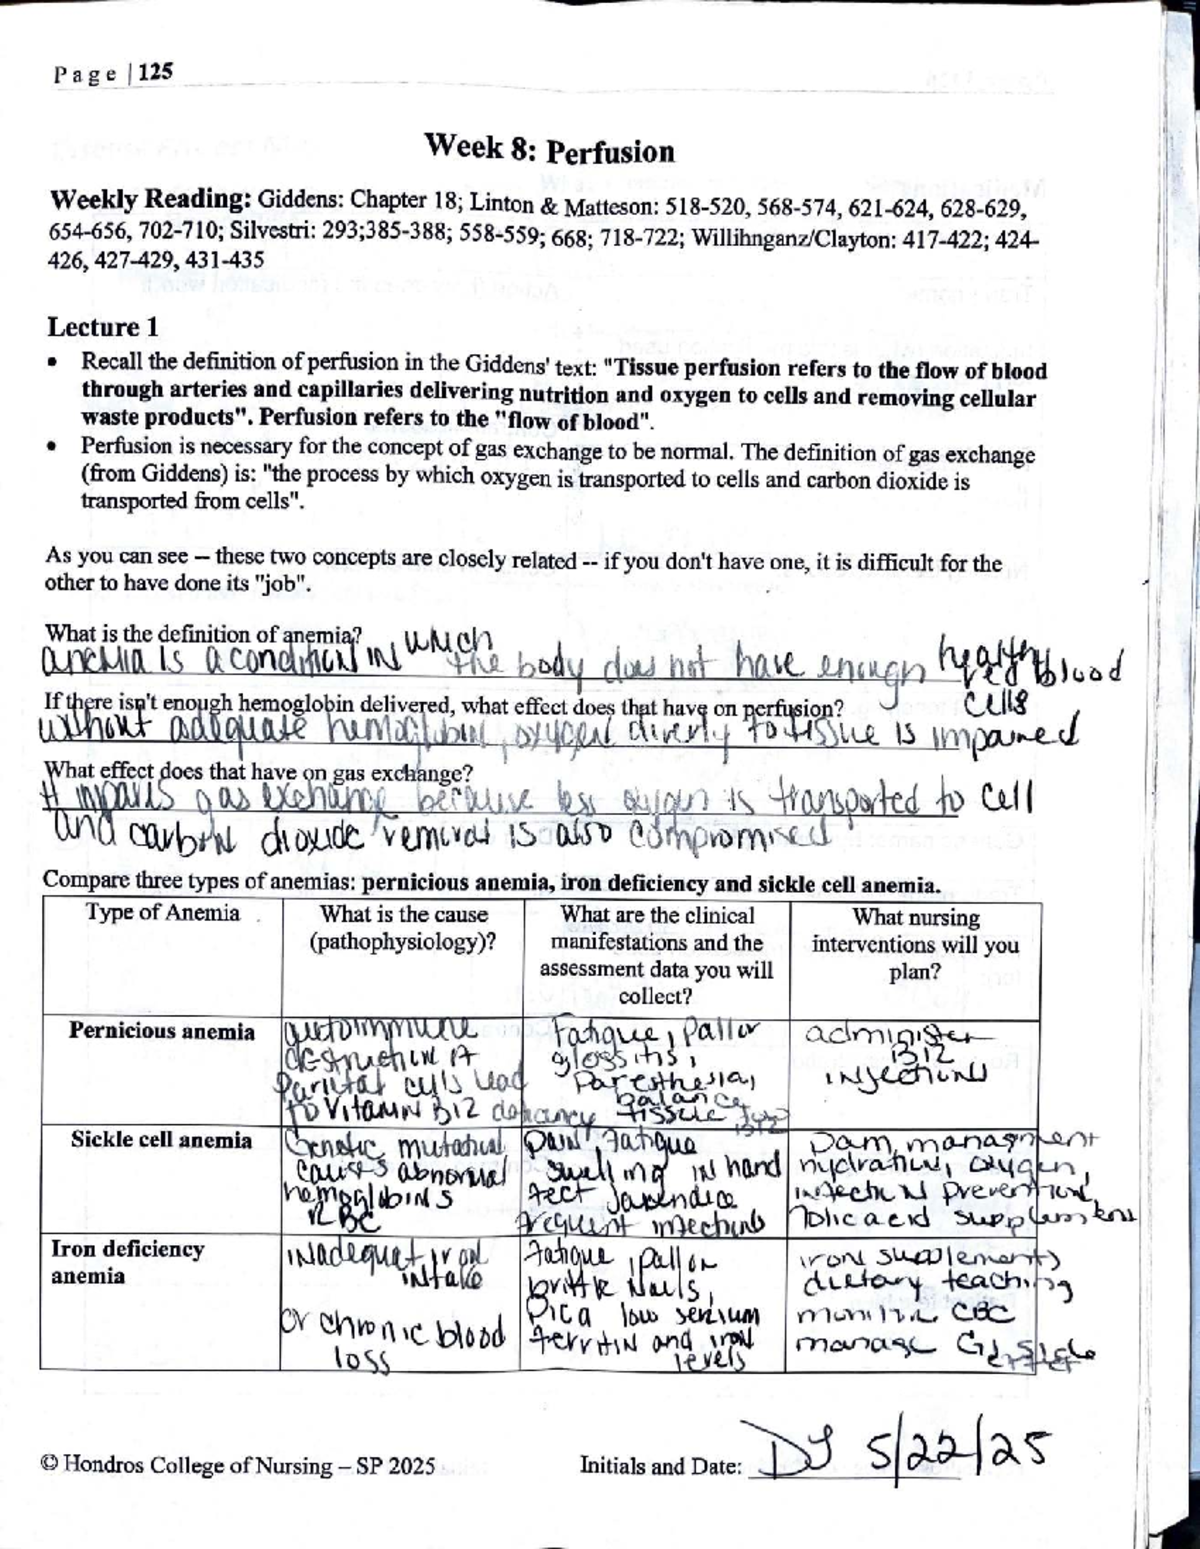 Page | 125
Week 8: Perfusion
Weekly Reading: Giddens: Chapter 18; Linton & Matteson: 518-520, 568-574, 621-624, 628-629,
654-656, 702-710; Silvestri: 293;385-388; 558-559; 668; 718-722; Willihnganz/Clayton: 417-422; 424-
426, 427-429, 431-435
Lecture 1
• Recall the definition of perfusion in the Giddens' text: "Tissue perfusion refers to the flow of blood
through arteries and capillaries delivering nutrition and oxygen to cells and removing cellular
waste products". Perfusion refers to the "flow of blood".
• Perfusion is necessary for the concept of gas exchange to be normal. The definition of gas exchange
(from Giddens) is: "the process by which oxygen is transported to cells and carbon dioxide is
transported from cells".
As you can see -- these two concepts are closely related -- if you don't have one, it is difficult for the
other to have done its "job".
What is the definition of anemia?
anemia is a condition in which the body does not have enough healthy red blood
cells
If there isn't enough hemoglobin delivered, what effect does that have on perfusion?
without adequate hemoglobin, oxygen divery to tissue is impaired
What effect does that have on gas exchange?
It impairs gas exchange because less oxygen is transported to cell
and carbon dioxide removal is also compromised
Compare three types of anemias: pernicious anemia, iron deficiency and sickle cell anemia.
Type of Anemia
What is the cause
(pathophysiology)?
What are the clinical
manifestations and the
assessment data you will
collect?
What nursing
interventions will you
plan?
Pernicious anemia
autoimmune
destruction of
parietal cells lead
to vitamin B12 deficancy
Fatigue, pallor
glossitis,
paresthesia,
balance
tissue
B12
administer
B12
injections
Sickle cell anemia
Genetic mutation
causes abnormal
hemoglobin s
RBC
pain fatigue
swelling in hand
feet jaundice
frequent infections
pain managment
hydration, oxygen,
infection prevention,
folic acid supplements
Iron deficiency
anemia
inadequet iron
intake
or chronic blood
loss
fatigue, pallor
brittle nails,
pica low serium
ferritin and iron
levels
iron supplements
dietary teaching
monitor CBC
manage GI side
effect
© Hondros College of Nursing – SP 2025
Initials and Date: DJ 5/22/25